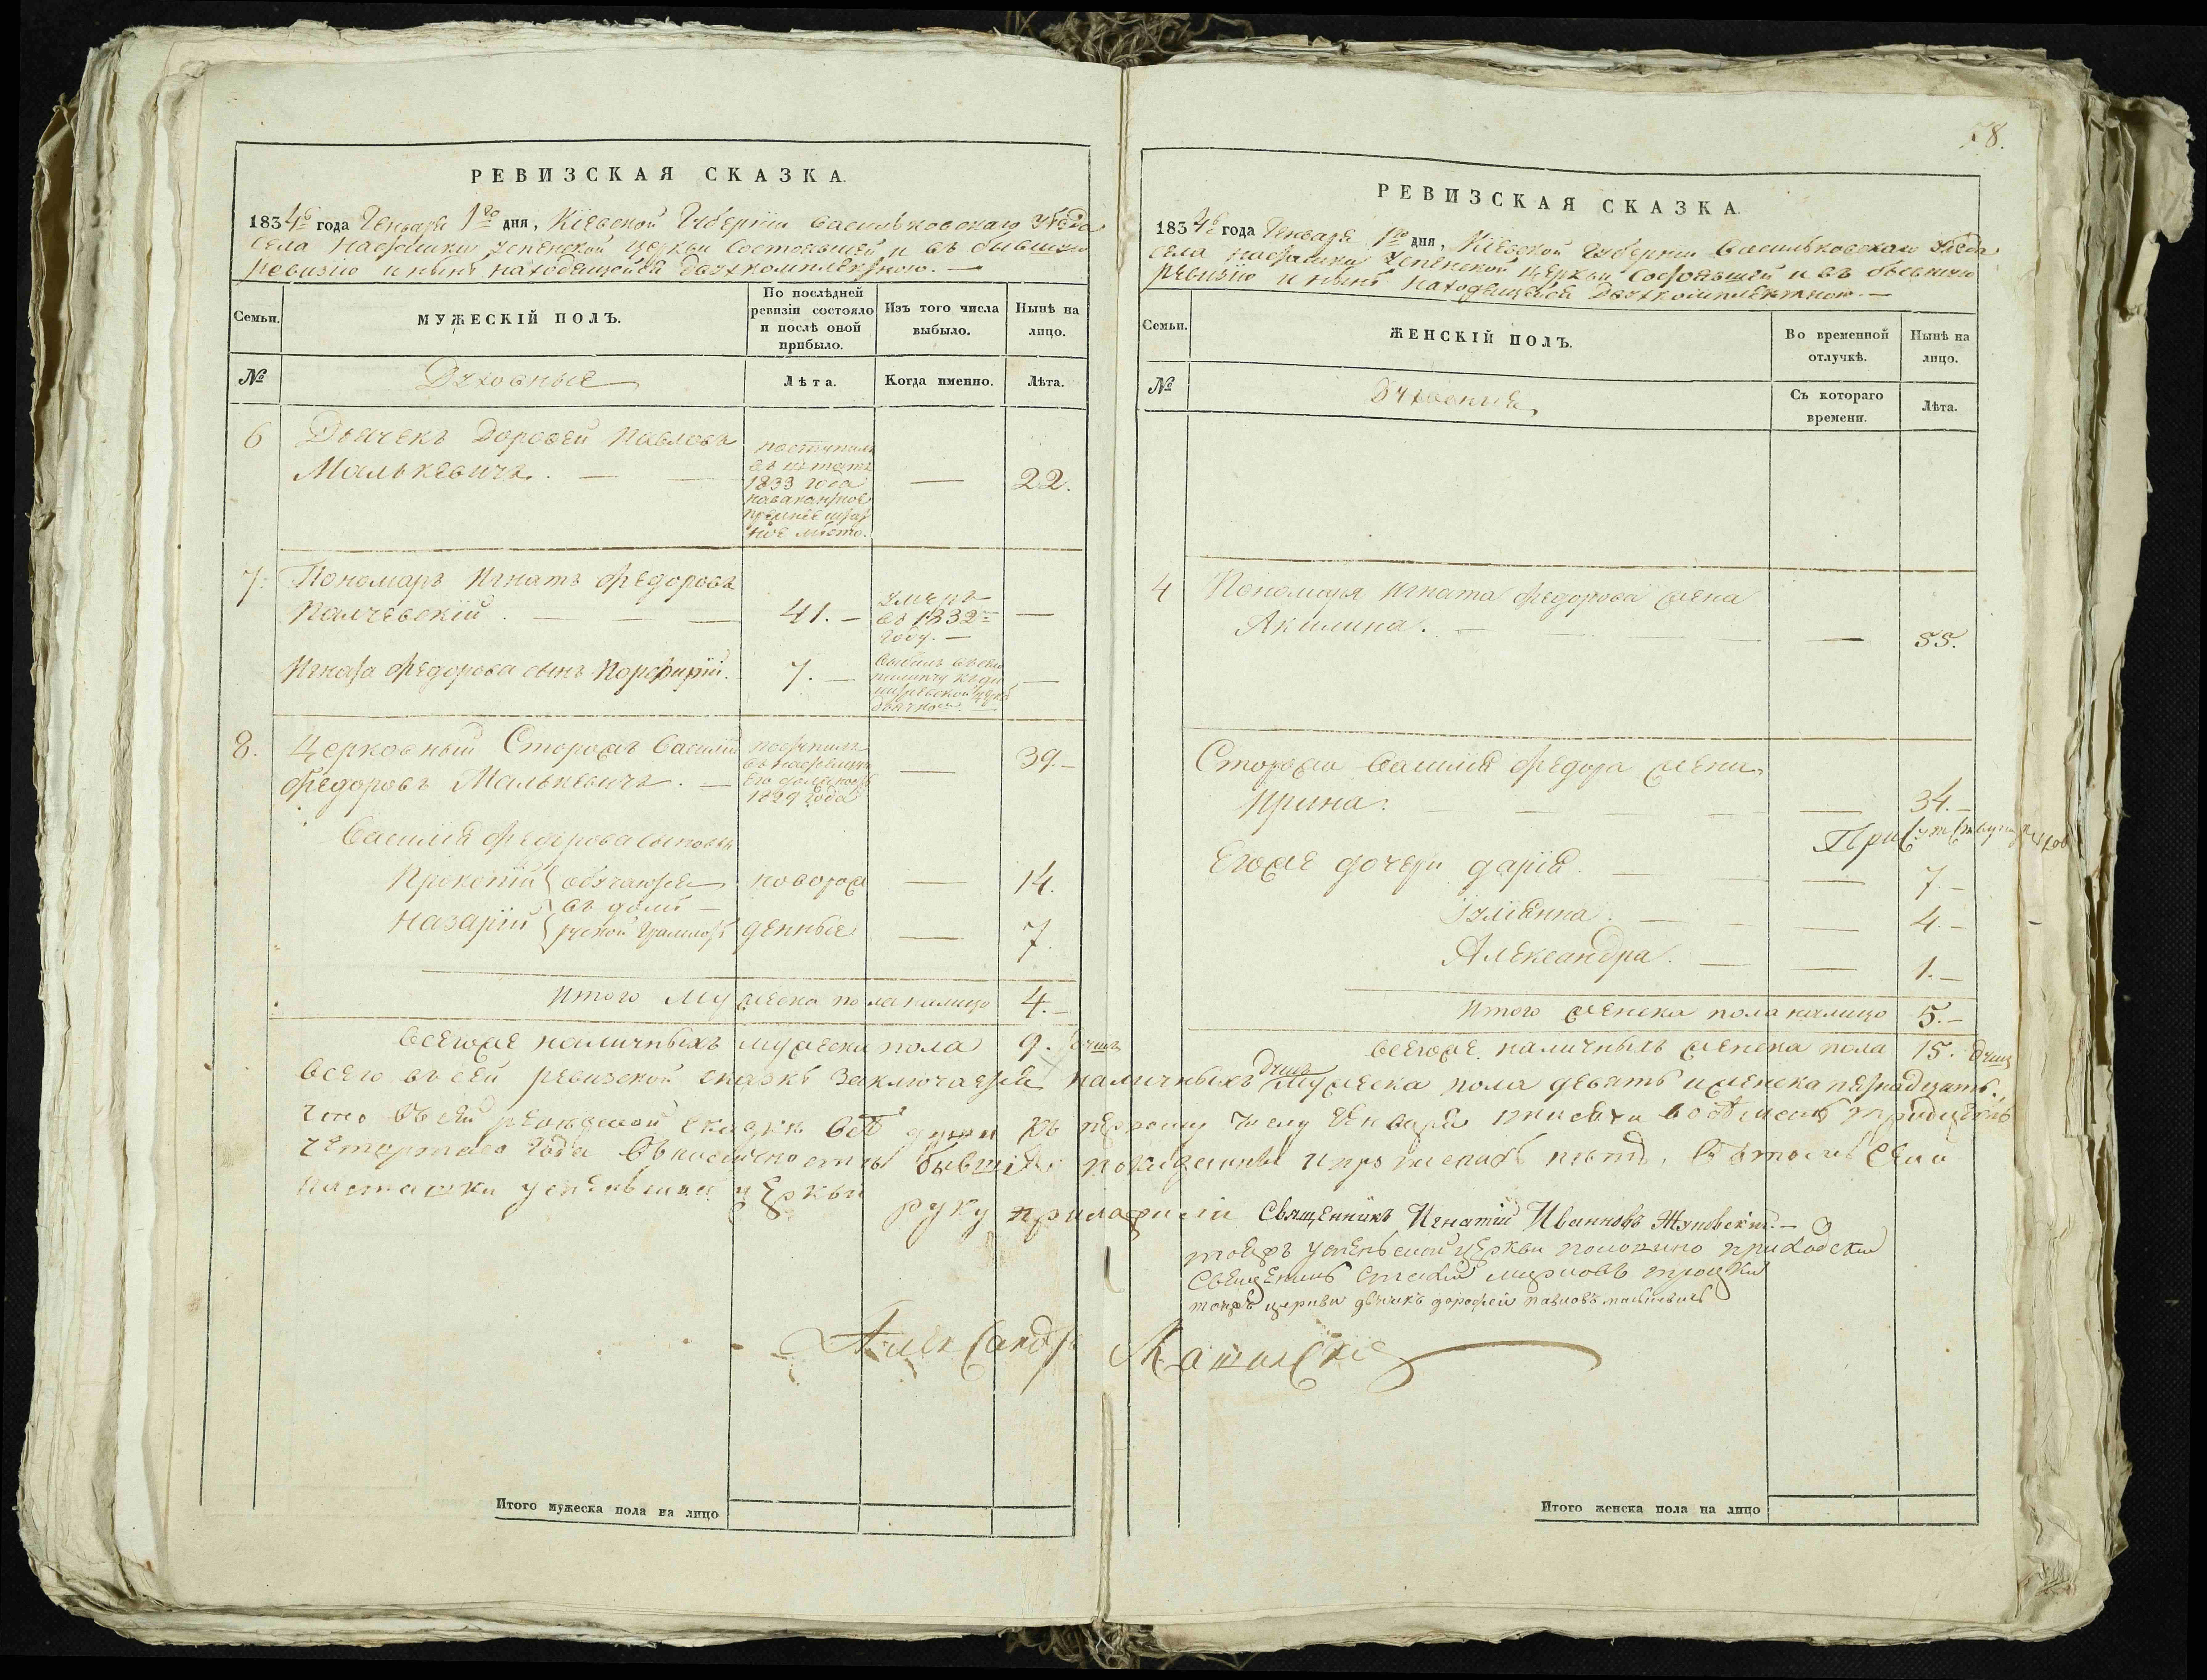 РЕВИЗСКАЯ СКАЗКА.
1834го года Генваря 1го дня, Кіевской Губерніи Васильковскаго Уѣзда
села Насташки Успенской церкви состоявшей и въ бывшую
ревизію и нынѣ находящейся двухкомплектною. —
Семьи.
МУЖЕСКІЙ ПОЛЪ.
По послѣдней ревизіи состояло и послѣ оной прибыло.
Изъ того числа выбыло.
Нынѣ на лицо.
№
Духовные
Лѣта.
Когда именно.
Лѣта.
6 Дьячекъ Дорофей Павловъ
Малькевичъ. — —
поступилъ
въ штатъ
1833 года
место.
—
22.
7. Пономаръ Игнатъ Федоровъ
Палчевскій. — — —
41. —
умеръ
въ 1832
году. —
—
Игната Федорова сынъ Порфирій.
7. —
—
8. Церковный Сторожъ Василій
Федоровъ Малькевичъ. —
поступилъ
въ
его должность
1829 года
—
39. —
Василія Федорова сыновья
Прокопій обучается новорож — 14.
въ домѣ —
Назарій руской грамотѣ денные — 7.
Итого мужеска пола налицо 4. —
Всегоже наличныхъ мужеска пола 9. душъ
78.
РЕВИЗСКАЯ СКАЗКА.
1834го года Генваря 1го дня, Кіевской Губерніи Васильковскаго Уѣзда
села Насташки Успенской церкви состоявшей и въ бывшую
ревизію и нынѣ находящейся двухкомплектною. —
Семьи.
ЖЕНСКІЙ ПОЛЪ.
Во временной отлучкѣ.
Нынѣ на лицо.
№
Духовныя
Съ котораго времени.
Лѣта.
4 Пономаря Игната Федорова жена
Акилина. — — — — 55.
Сторожа Василія Федора жена
Ирина. — — — — 34. —
Егоже дочери Дарія. — — — 7. —
Уліянна. — — — 4. —
Александра. — — 1. —
Итого женска пола налицо 5. —
Всегоже наличныхъ женска пола 15. душъ
Всего въ сей ревизской сказкѣ заключается наличныхъ душъ мужеска пола девять и женска пятнадцать.
что въ сей ревизской сказкѣ всѣ души къ первому числу генваря тысяча восѣмсотъ тридцать
четвертого года въ наличности бывшія показанны и прописныхъ нѣтъ, въ томъ села
Насташки Успенской церкви руку приложили Священникъ Игнатій Иванновъ Жуковскій. —
тоежъ Успенской церкви приходскій
Священникъ
тоежъ церкви дьячокъ Дорофей Павловъ Малькевичъ
Александръ
Итого мужеска пола на лицо
Итого женска пола на лицо